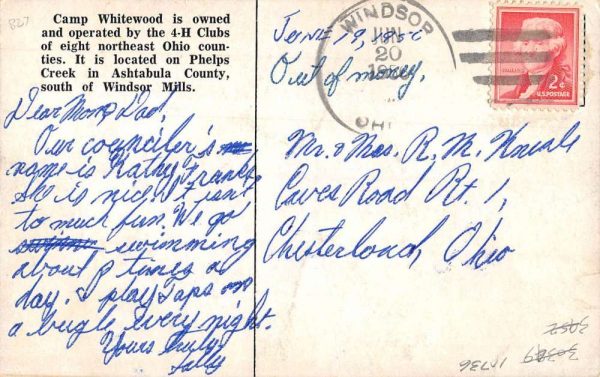 Camp Whitewood is owned
and operated by the 4-H Clubs
of eight northeast Ohio coun-
ties. It is located on Phelps
Creek in Ashtabula County,
south of Windsor Mills.
Dear Mom & Dad,
Our counciler's
name is Kathy Frank
she is nice. It isn't
to much fun. We go
swimming
about 2 times a
day. I play Taps on
a bugle every night.
Yours truly,
Sally
June 19, 1956
Out of money.
WINDSOR
JUN
20
OHIO
2¢
U.S. POSTAGE
Mr. & Mrs. R. M.
Caves Road Rt. 1,
Chesterland, Ohio
B27
1736